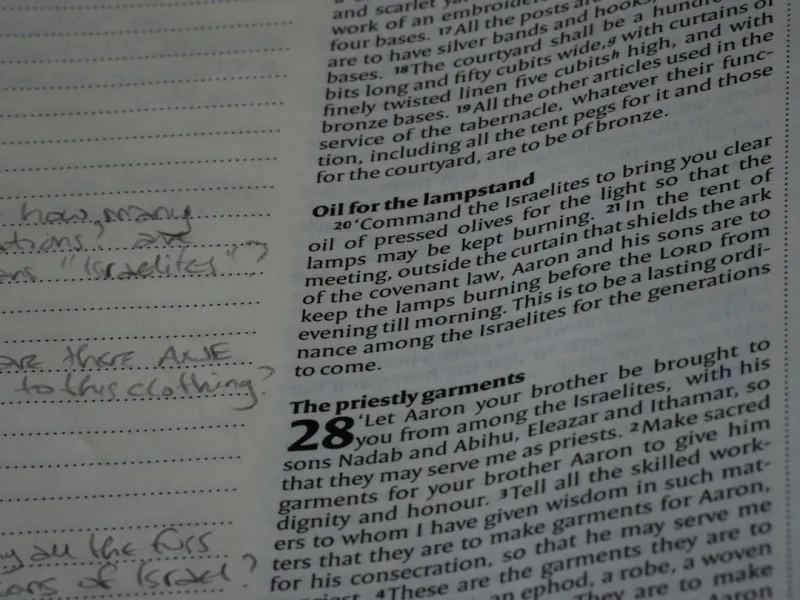 how many
ations, are
"Israelites"?
are there ANE
to this clothing?
all the fuss
of Israel?
and scarlet
work of an
four bases. 17All the posts
are to have silver bands and hooks,
bases. 18The courtyard shall be a
bits long and fifty cubits wide,g with curtains of
finely twisted linen five cubitsh high, and with
bronze bases. 19All the other articles used in the
service of the tabernacle, whatever their func-
tion, including all the tent pegs for it and those
for the courtyard, are to be of bronze.
Oil for the lampstand
20‘Command the Israelites to bring you clear
oil of pressed olives for the light so that the
lamps may be kept burning. 21In the tent of
meeting, outside the curtain that shields the ark
of the covenant law, Aaron and his sons are to
keep the lamps burning before the LORD from
evening till morning. This is to be a lasting ordi-
nance among the Israelites for the generations
to come.
The priestly garments
28 ‘Let Aaron your brother be brought to
you from among the Israelites, with his
sons Nadab and Abihu, Eleazar and Ithamar, so
that they may serve me as priests. 2Make sacred
garments for your brother Aaron to give him
dignity and honour. 3Tell all the skilled work-
ers to whom I have given wisdom in such mat-
ters that they are to make garments for Aaron,
for his consecration, so that he may serve me
4These are the garments they are to
an ephod, a robe, a woven
They are to make
Aaron